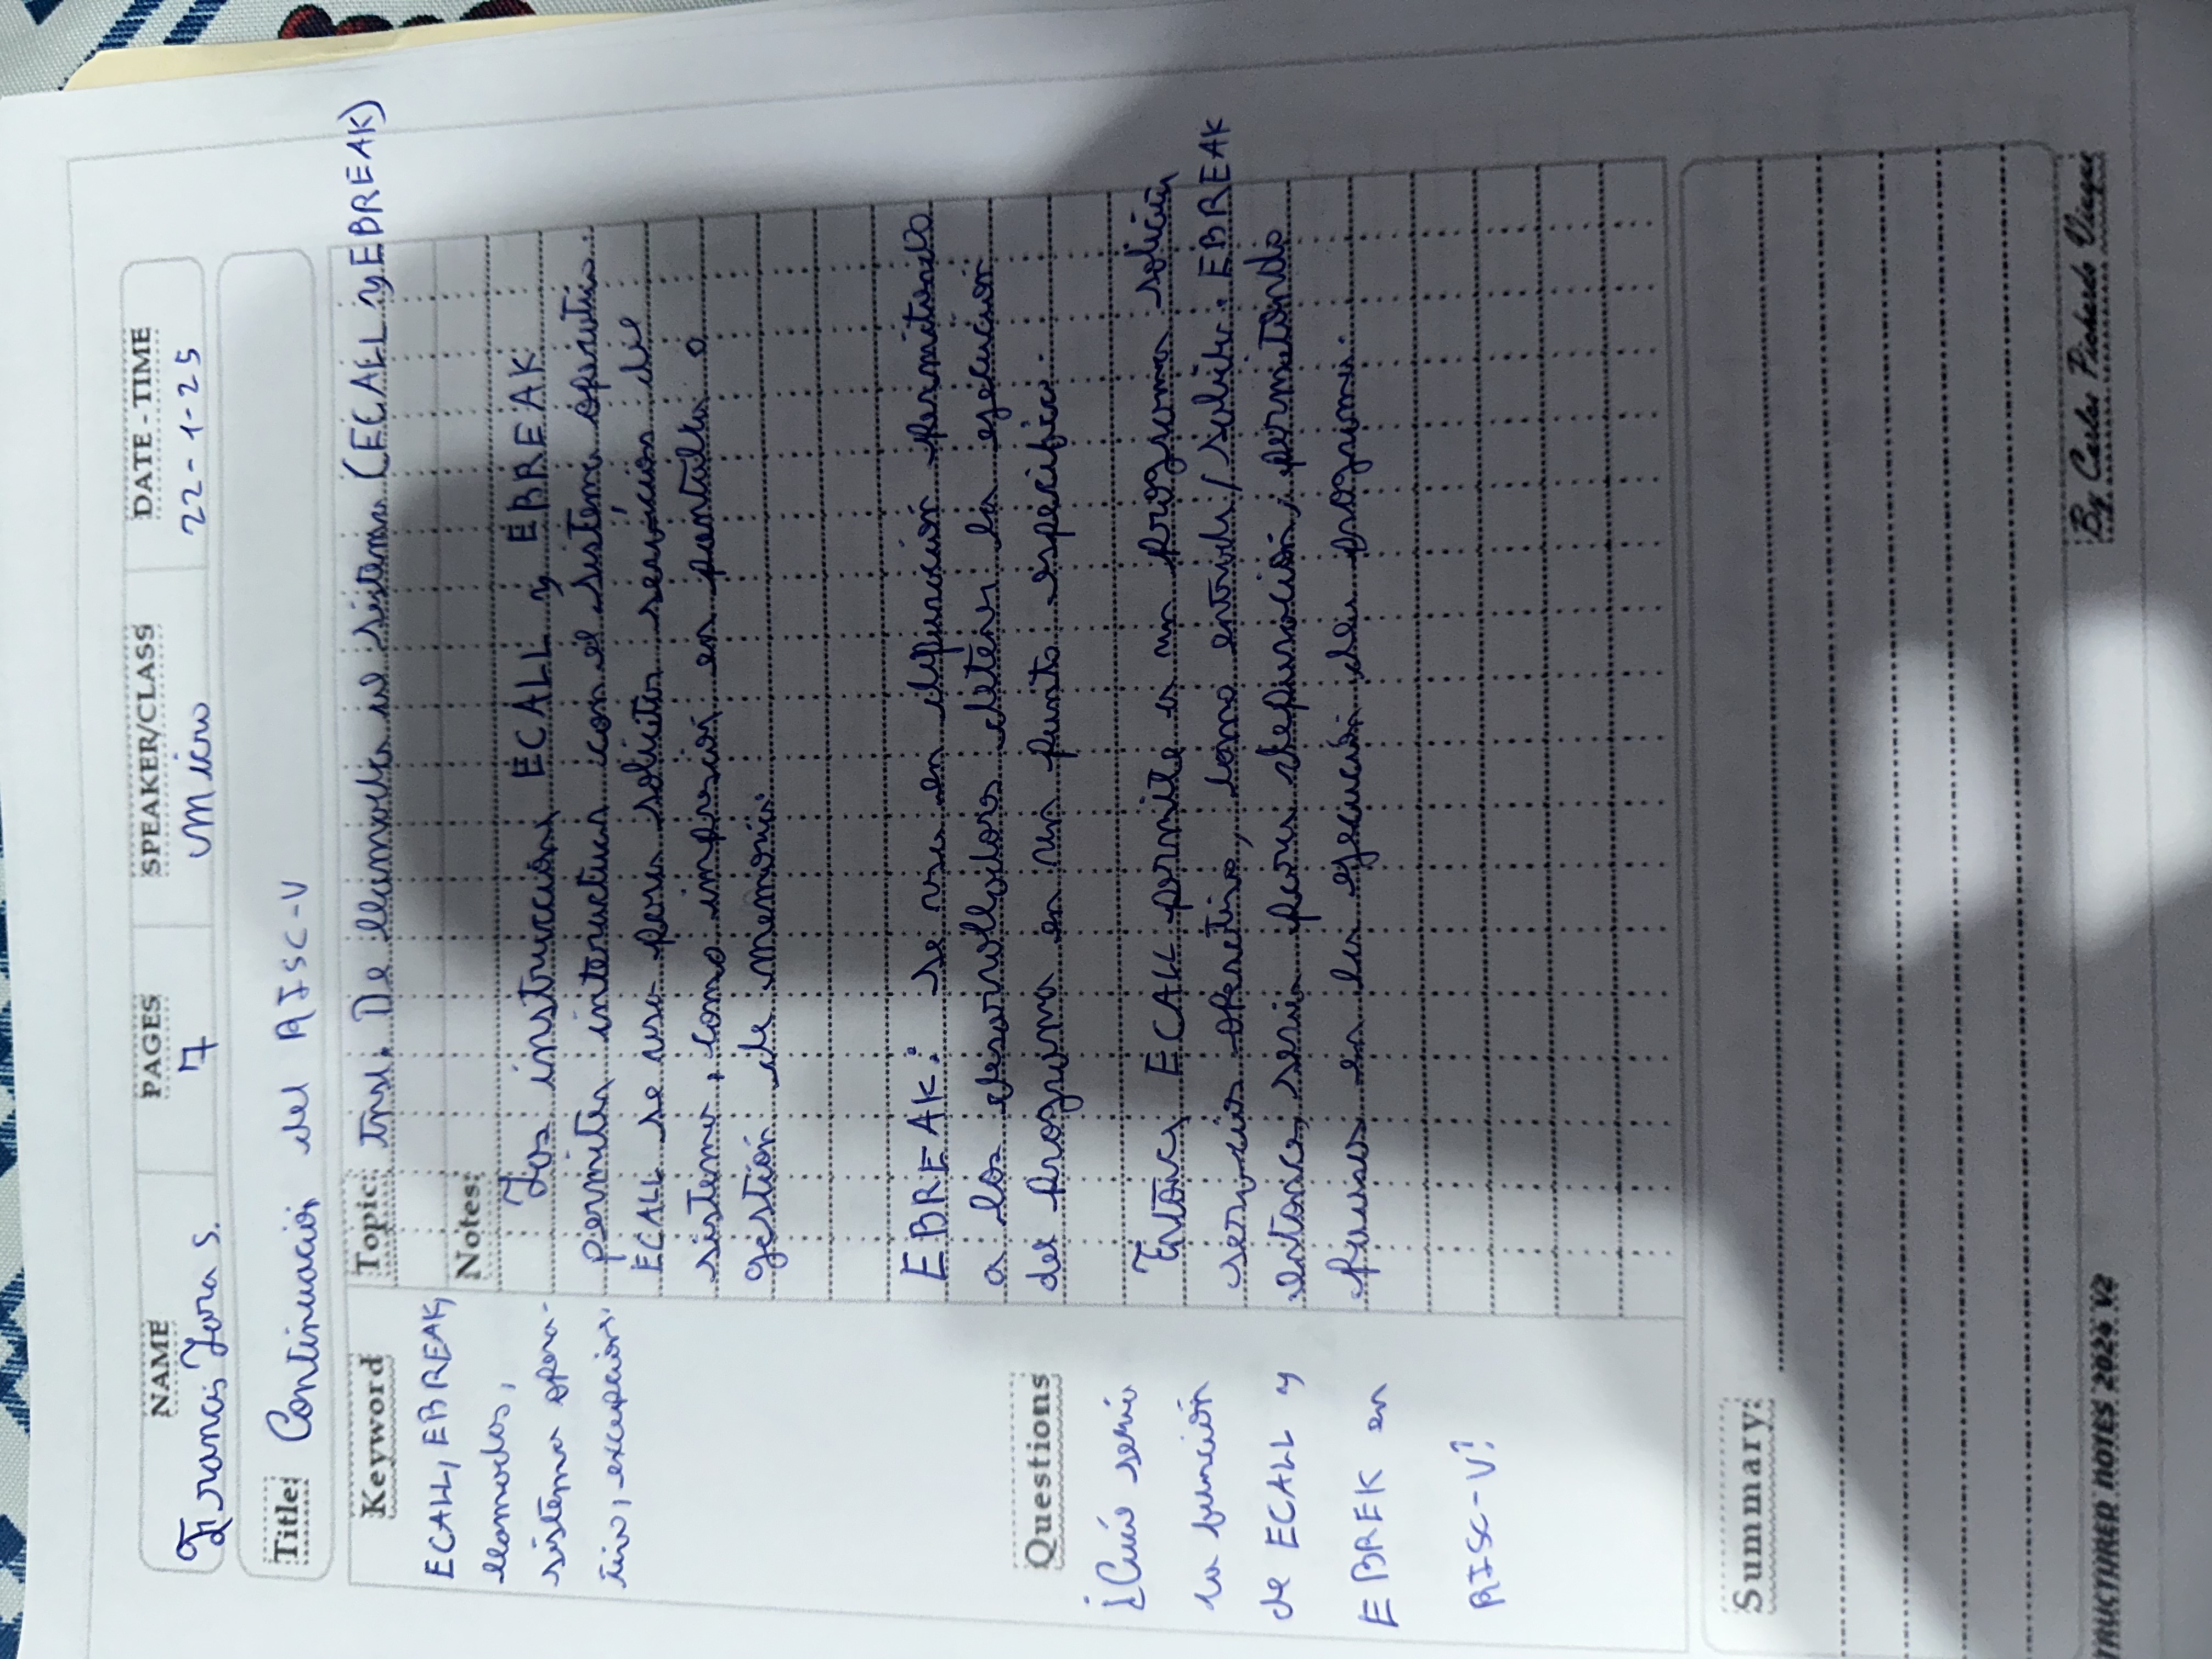 NAME
PAGES
SPEAKER/CLASS
DATE - TIME
Francis Jara S.
7
Micro
22-1-25
Title: Continuación del RISC-V
Keyword
ECALL, EBREAK,
llamadas,
sistema opera-
tivo, excepcions.
Topic: Inst. De llamada al sistema (ECALL y EBREAK)
Notes:
Las instruccions ECALL y EBREAK
permiten interactuar con el sistema operativo.
ECALL se usa para solicitar servicios del
sistema, como impresión en pantalla o
gestión de memoria.
EBREAK: se usa en depuración permitiendo
a los desarrolladores detener la ejecución
del programa en un punto especifico.
Entonces ECALL permite a un programa solicitar
servicios operativo, como entrada/salida. EBREAK
entonces seria para depuración, permitiendo
pausas en la ejecución del programa.
Questions
¿Cuál seria
la función
de ECALL y
EBREK en
RISC-V?
Summary:
TRUCTURED NOTES 2024 V2
By Carlos Pichardo Viuque